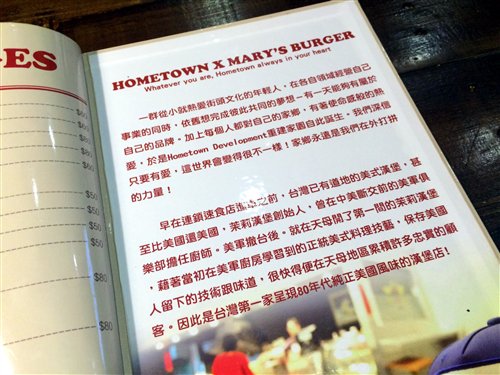 GES
$60
$50
$50
$50
$80
$80
HOMETOWN X MARY'S BURGER
Whatever you are, Hometown always in your heart
一群從小就熱愛街頭文化的年輕人，在各自領域經營自己
事業的同時，依舊想完成彼此共同的夢想-有一天能夠有屬於
自己的品牌。加上每個人都對自己的家鄉，有著使命感般的熱
愛，於是Hometown Development重建家園自此誕生。我們深信
只要有愛，這世界會變得很不一樣！家鄉永遠是我們在外打拼
的力量！
早在連鎖速食店進駐之前，台灣已有道地的美式漢堡，甚
至比美國還美國，茉莉漢堡創始人，曾在中美斷交前的美軍俱
樂部擔任廚師。美軍撤台後。就在天母開了第一間的茉莉漢堡
，藉著當初在美軍廚房學習到的正統美式料理技藝，保持美國
人留下的技術跟味道，很快得便在天母地區累積許多忠實的顧
客。因此是台灣第一家呈現80年代純正美國風味的漢堡店！